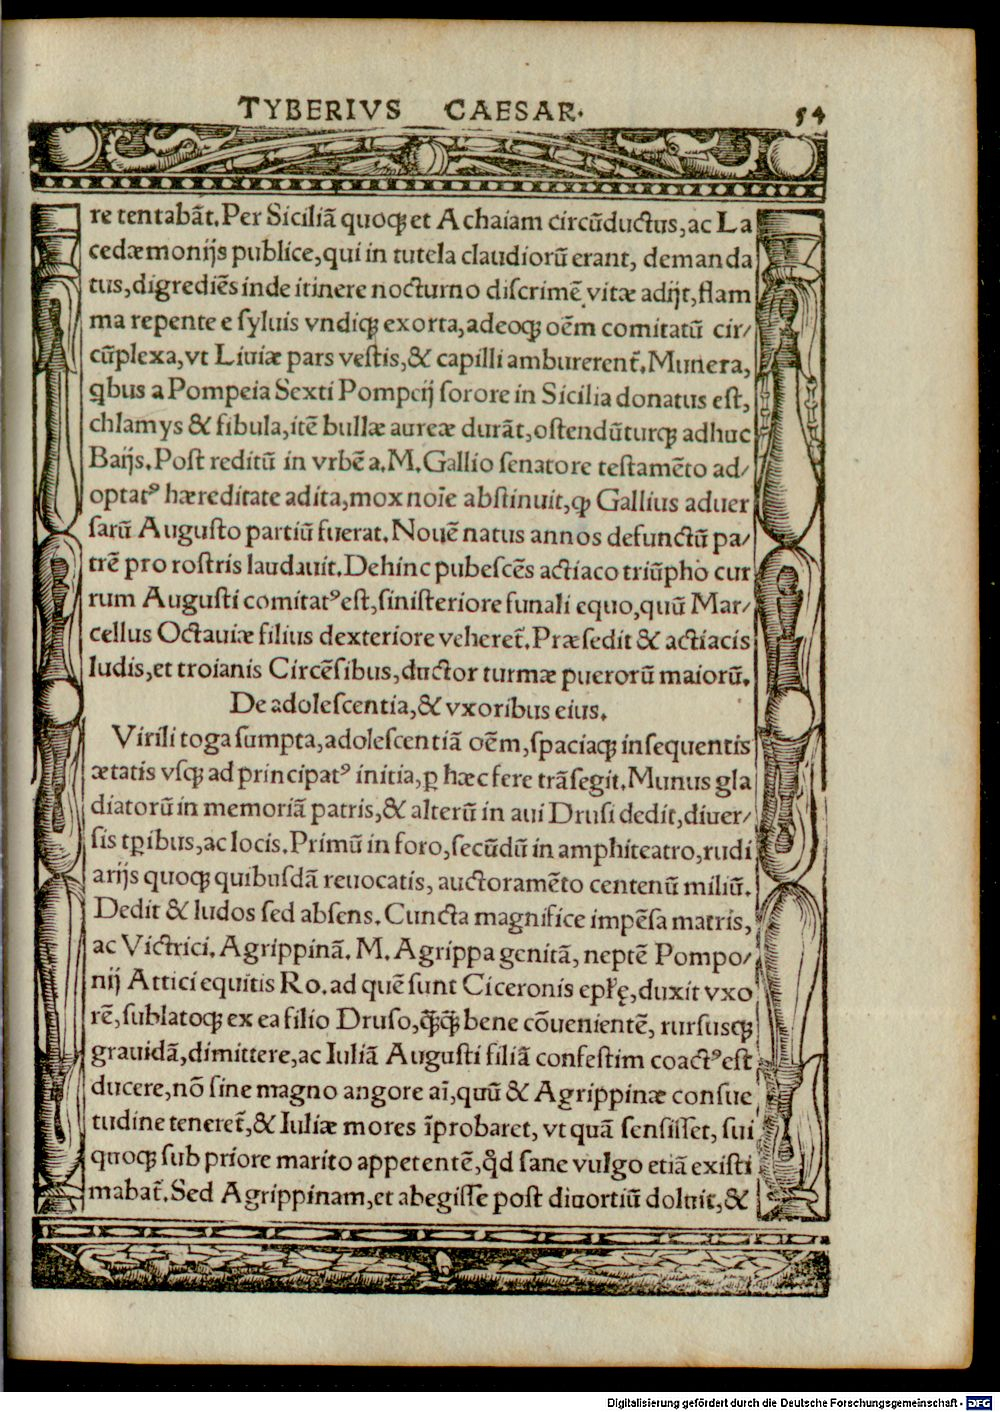 TYBERIVS CAESAR. 54
re tentabãt. Per Siciliã quoqꝫ et Achaiam circũductus, ac La
cedæmonijs publice, qui in tutela claudiorũ erant, demanda
tus, digrediẽs inde itinere nocturno diſcrimẽ vitæ adijt, flam
ma repente e ſyluis vndiqꝫ exorta, adeoqꝫ oẽm comitatũ cir/
cũplexa, vt Liuiæ pars veſtis, & capilli amburerent̃. Munera,
qᷓbus a Pompeia Sexti Pompeij ſorore in Sicilia donatus eſt,
chlamys & fibula, itẽ bullæ aureæ durãt, oſtendũturqꝫ adhuc
Baijs. Poſt reditũ in vrbẽ a. M. Gallio ſenatore teſtamẽto ad/
optatꝰ hæreditate adita, mox noĩe abſtinuit, ꝙ Gallius aduer
ſarũ Auguſto partiũ fuerat. Nouẽ natus annos defunctũ pa/
trẽ pro roſtris laudauit. Dehinc pubeſcẽs actiaco triũpho cur
rum Auguſti comitatꝰ eſt, ſiniſteriore funali equo, quũ Mar/
cellus Octauiæ filius dexteriore veheret̃. Præſedit & actiacis
ludis, et troianis Circẽſibus, ductor turmæ puerorũ maiorũ.
De adoleſcentia, & vxoribus eius.
Virili toga ſumpta, adoleſcentiã oẽm, ſpaciaqꝫ inſequentis
ætatis vſqꝫ ad principatꝰ initia, ꝑ hæc fere trãſegit. Munus gla
diatorũ in memoriã patris, & alterũ in aui Druſi dedit, diuer/
ſis tꝑibus, ac locis. Primũ in foro, ſecũdũ in amphiteatro, rudi
arijs quoqꝫ quibuſdã reuocatis, auctoramẽto centenũ miliũ.
Dedit & ludos ſed abſens. Cuncta magnifice impẽſa matris,
ac Victrici. Agrippinã. M. Agrippa genitã, neptẽ Pompo/
nij Attici equitis Ro. ad quẽ ſunt Ciceronis epłę, duxit vxo
rẽ, ſublatoqꝫ ex ea filio Druſo, qᷓqᷓ bene cõuenientẽ, rurſusqꝫ
grauidã, dimittere, ac Iuliã Auguſti filiã confeſtim coactꝰ eſt
ducere, nõ ſine magno angore aĩ, quũ & Agrippinæ conſue
tudine teneret̃, & Iuliæ mores ĩprobaret, vt quã ſenſiſſet, ſui
quoqꝫ ſub priore marito appetentẽ, qd̃ ſane vulgo etiã exiſti
mabat̃. Sed Agrippinam, et abegiſſe poſt diuortiũ doluit, &
Digitalisierung gefördert durch die Deutsche Forschungsgemeinschaft - DFG